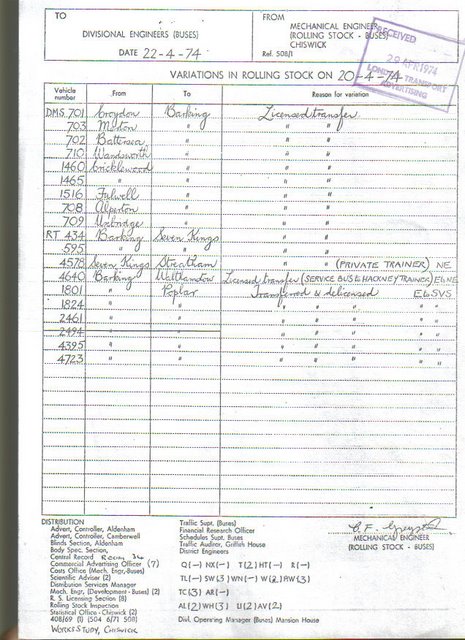 TO
DIVISIONAL ENGINEERS (BUSES)
DATE 22-4-74
FROM
MECHANICAL ENGINEER
(ROLLING STOCK - BUSES)
CHISWICK
Ref. 508/1
RECEIVED
29 APR 1974
LONDON TRANSPORT
ADVERTISING
VARIATIONS IN ROLLING STOCK ON 20-4-74
Vehicle number From To Reason for variation
DMS 701 Croydon Barking Licensed transfer
703 Merton " " "
702 Battersea " " "
710 Wandsworth " " "
1460 Cricklewood " " "
1465 " " " "
1516 Fulwell " " "
708 Alperton " " "
709 Uxbridge " " "
RT 434 Barking Seven Kings " "
595 " " " "
4578 Seven Kings Streatham " " (PRIVATE TRAINER) NE
4640 Barking Walthamstow Licensed transfer (SERVICE BUS & HACKNEY TRAINER)
1801 " Poplar Transferred & delicensed E6SVS
1824 " " " " " " "
2461 " " " " " " "
2494 " " " " " " "
4395 " " " " " " "
4723 " " " " " " "
DISTRIBUTION
Advert, Controller, Aldenham
Advert, Controller, Camberwell
Blinds Section, Aldenham
Body Spec. Section,
Central Record Room 34
Commercial Advertising Officer (7)
Costs Office (Mech. Engr.-Buses)
Scientific Adviser (2)
Distribution Services Manager
Mech. Engr, (Development - Buses) (2)
R. S. Licensing Section (8)
Rolling Stock Inspection
Statistical Office - Chiswick (2)
408/69 (1) (504 6/71 508)
WORKS STUDY, CHISWICK
Traffic Supt. (Buses)
Financial Research Officer
Schedules Supt. Buses
Traffic Auditor, Griffith House
District Engineers
Q(—) NX(—) T(2) HT(—) R(—)
TL(—) SW(3) WN(—) W(2) RW(3)
TC(3) AR(—)
AL(2) WH(3) U(2) AV(2)
Divl. Operating Manager (Buses) Mansion House
MECHANICAL ENGINEER
(ROLLING STOCK - BUSES)